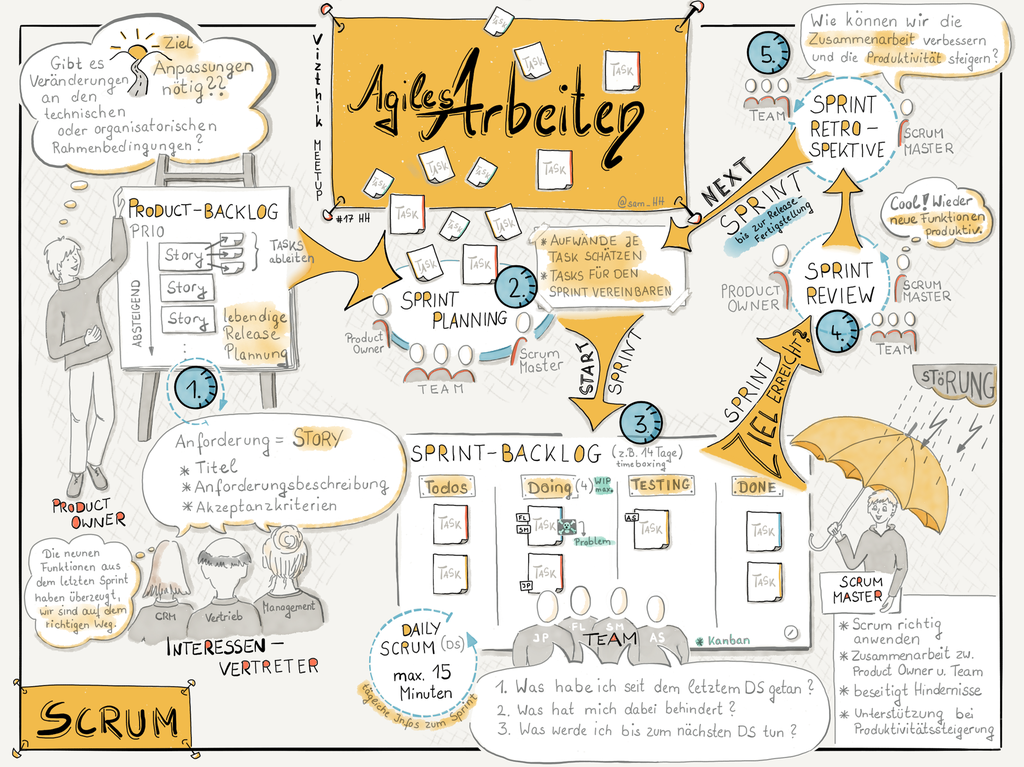 Vizthik MEETUP
#17 HH
Agiles Arbeiten
@sam_HH
TASK
TASK
TASK
TASK
TASK
TASK
TASK
TASK
TASK
TASK
TASK
TASK
Ziel
Gibt es
Veränderungen
Anpassungen
nötig??
an den
technischen
oder organisatorischen
Rahmenbedingungen?
PRODUCT-BACKLOG
PRIO
ABSTEIGEND
Story
Story
Story
TASKS
ableiten
lebendige
Release
Plannung
1.
PRODUCT
OWNER
Anforderung = STORY
* Titel
* Anforderungsbeschreibung
* Akzeptanzkriterien
Die neunen
Funktionen aus
dem letzten Sprint
haben überzeugt,
wir sind auf dem
richtigen Weg.
CRM
Vertrieb
Management
INTERESSEN-
VERTRETER
SCRUM
2.
SPRINT
PLANNING
Product
Owner
TEAM
Scrum
Master
* AUFWÄNDE JE
TASK SCHÄTZEN
* TASKS FÜR DEN
SPRINT VEREINBAREN
START
SPRINT
3.
SPRINT-BACKLOG (z.B. 14 Tage)
timeboxing
Todos
Doing (4) WIP
max.
TESTING
DONE
TASK
TASK
FL
SM
TASK
Problem
JP
TASK
AS
TASK
TASK
TASK
JP
FL
SM
AS
TEAM
* Kanban
DAILY
SCRUM (DS)
max. 15
Minuten
tägliche Infos zum Sprint
1. Was habe ich seit dem letztem DS getan?
2. Was hat mich dabei behindert?
3. Was werde ich bis zum nächsten DS tun?
SPRINT
ZIEL ERREICHT?
4.
SPRINT
REVIEW
PRODUCT
OWNER
SCRUM
MASTER
TEAM
Cool! Wieder
neue Funktionen
produktiv.
5.
SPRINT
RETRO-
SPEKTIVE
TEAM
SCRUM
MASTER
Wie können wir die
Zusammenarbeit verbessern
und die Produktivität steigern?
NEXT
SPRINT
bis zur Release-
Fertigstellung
STÖRUNG
SCRUM
MASTER
* Scrum richtig
anwenden
* Zusammenarbeit zw.
Product Owner u. Team
* beseitigt Hindernisse
* Unterstützung bei
Produktivitätssteigerung